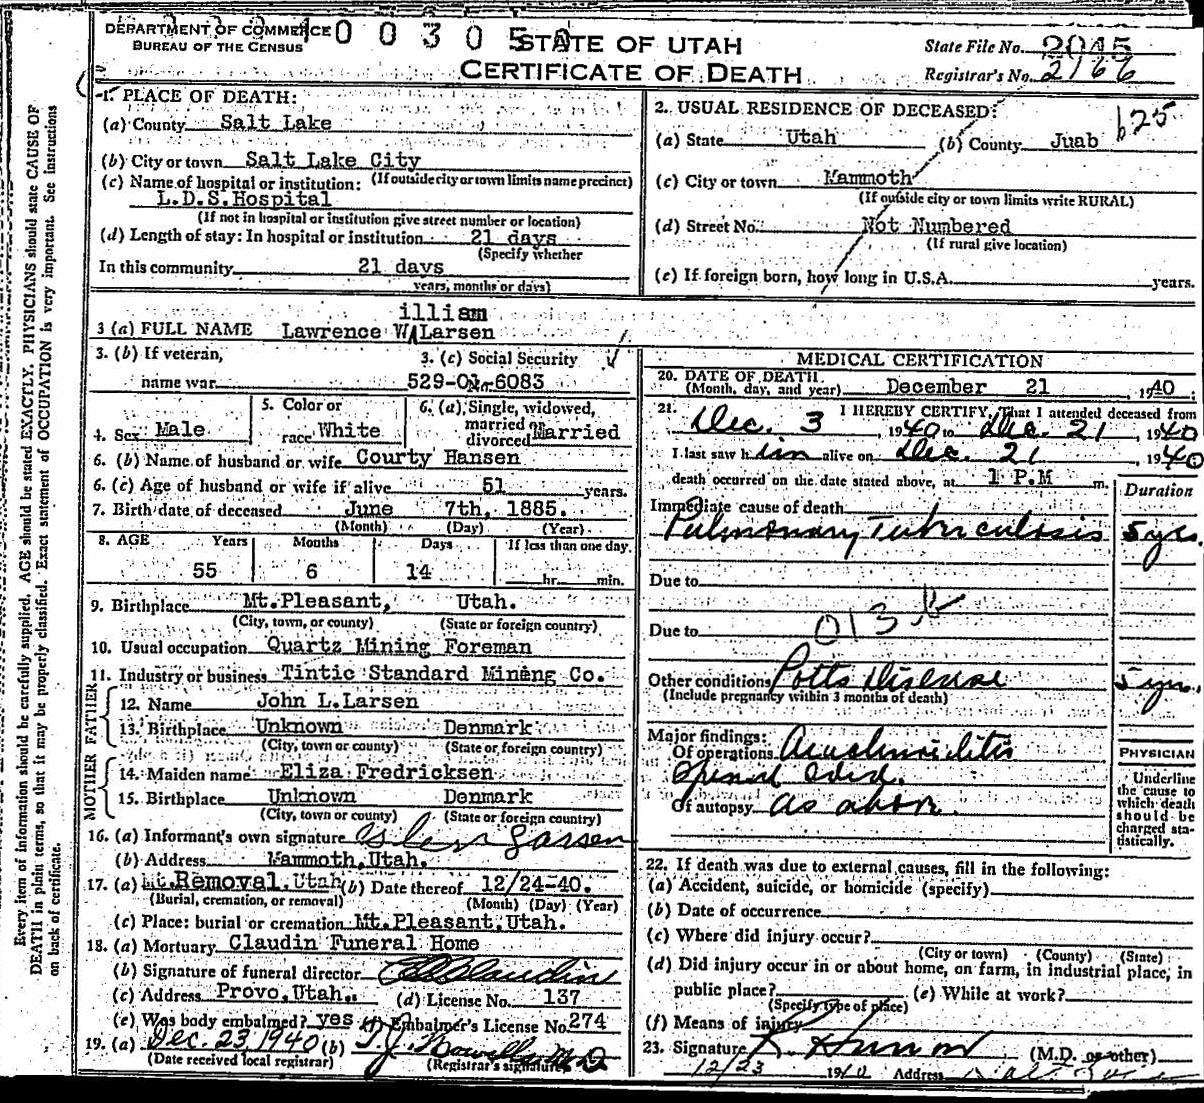 DEPARTMENT OF COMMERCE
BUREAU OF THE CENSUS
STATE OF UTAH
CERTIFICATE OF DEATH
State File No. 2045
Registrar's No. 2166
Every item of information should be carefully supplied. AGE should be stated EXACTLY. PHYSICIANS should state CAUSE OF
DEATH in plain terms, so that it may be properly classified. Exact statement of OCCUPATION is very important. See instructions
on back of certificate.
1. PLACE OF DEATH:
(a) County Salt Lake
(b) City or town Salt Lake City
(If outside city or town limits name precinct)
(c) Name of hospital or institution:
L.D.S.Hospital
(If not in hospital or institution give street number or location)
(d) Length of stay: In hospital or institution 21 days
(Specify whether
In this community 21 days
years, months or days)
2. USUAL RESIDENCE OF DECEASED:
b25
(a) State Utah (b) County Juab
(c) City or town Mammoth
(If outside city or town limits write RURAL)
(d) Street No. Not Numbered
(If rural give location)
(e) If foreign born, how long in U.S.A. years.
illiam
3 (a) FULL NAME Lawrence W Larsen
3. (b) If veteran,
name war
3. (c) Social Security
No. 529-01-6083
4. Sex Male
5. Color or
race White
6. (a) Single, widowed,
married or
divorced Married
6. (b) Name of husband or wife Courty Hansen
6. (c) Age of husband or wife if alive 51 years.
7. Birth date of deceased June 7th, 1885.
(Month) (Day) (Year)
8. AGE Years Months Days If less than one day
55 6 14 hr. min.
9. Birthplace Mt.Pleasant, Utah.
(City, town, or county) (State or foreign country)
10. Usual occupation Quartz Mining Foreman
11. Industry or business Tintic Standard Mining Co.
FATHER
12. Name John L.Larsen
13. Birthplace Unknown Denmark
(City, town or county) (State or foreign country)
MOTHER
14. Maiden name Eliza Fredricksen
15. Birthplace Unknown Denmark
(City, town or county) (State or foreign country)
16. (a) Informant's own signature
(b) Address Mammoth,Utah.
17. (a) Removal (b) Date thereof 12/24-40.
(Burial, cremation, or removal) (Month) (Day) (Year)
(c) Place: burial or cremation Mt.Pleasant,Utah.
18. (a) Mortuary Claudin Funeral Home
(b) Signature of funeral director
(c) Address Provo,Utah. (d) License No. 137
(e) Was body embalmed? yes (f) Embalmer's License No. 274
19. (a) Dec. 23, 1940 (b)
(Date received local registrar) (Registrar's signature)
MEDICAL CERTIFICATION
20. DATE OF DEATH
(Month, day, and year) December 21, 1940;
21. I HEREBY CERTIFY, That I attended deceased from
Dec. 3, 1940 to Dec. 21, 1940
I last saw him alive on Dec. 21 1940
death occurred on the date stated above, at 1 P.M m.
Duration
Immediate cause of death
Pulmonary Tuberculosis 5 yrs.
Due to
013
Due to
Other conditions Potts Disease 5 yrs.
(Include pregnancy within 3 months of death)
Major findings:
Of operations Arachnoiditis
Spinal Cord.
Of autopsy as above.
PHYSICIAN
Underline
the cause to
which death
should be
charged sta-
tistically.
22. If death was due to external causes, fill in the following:
(a) Accident, suicide, or homicide (specify)
(b) Date of occurrence
(c) Where did injury occur?
(City or town) (County) (State)
(d) Did injury occur in or about home, on farm, in industrial place, in
public place? (e) While at work?
(Specify type of place)
(f) Means of injury
23. Signature (M.D. or other)
12/23 1940 Address